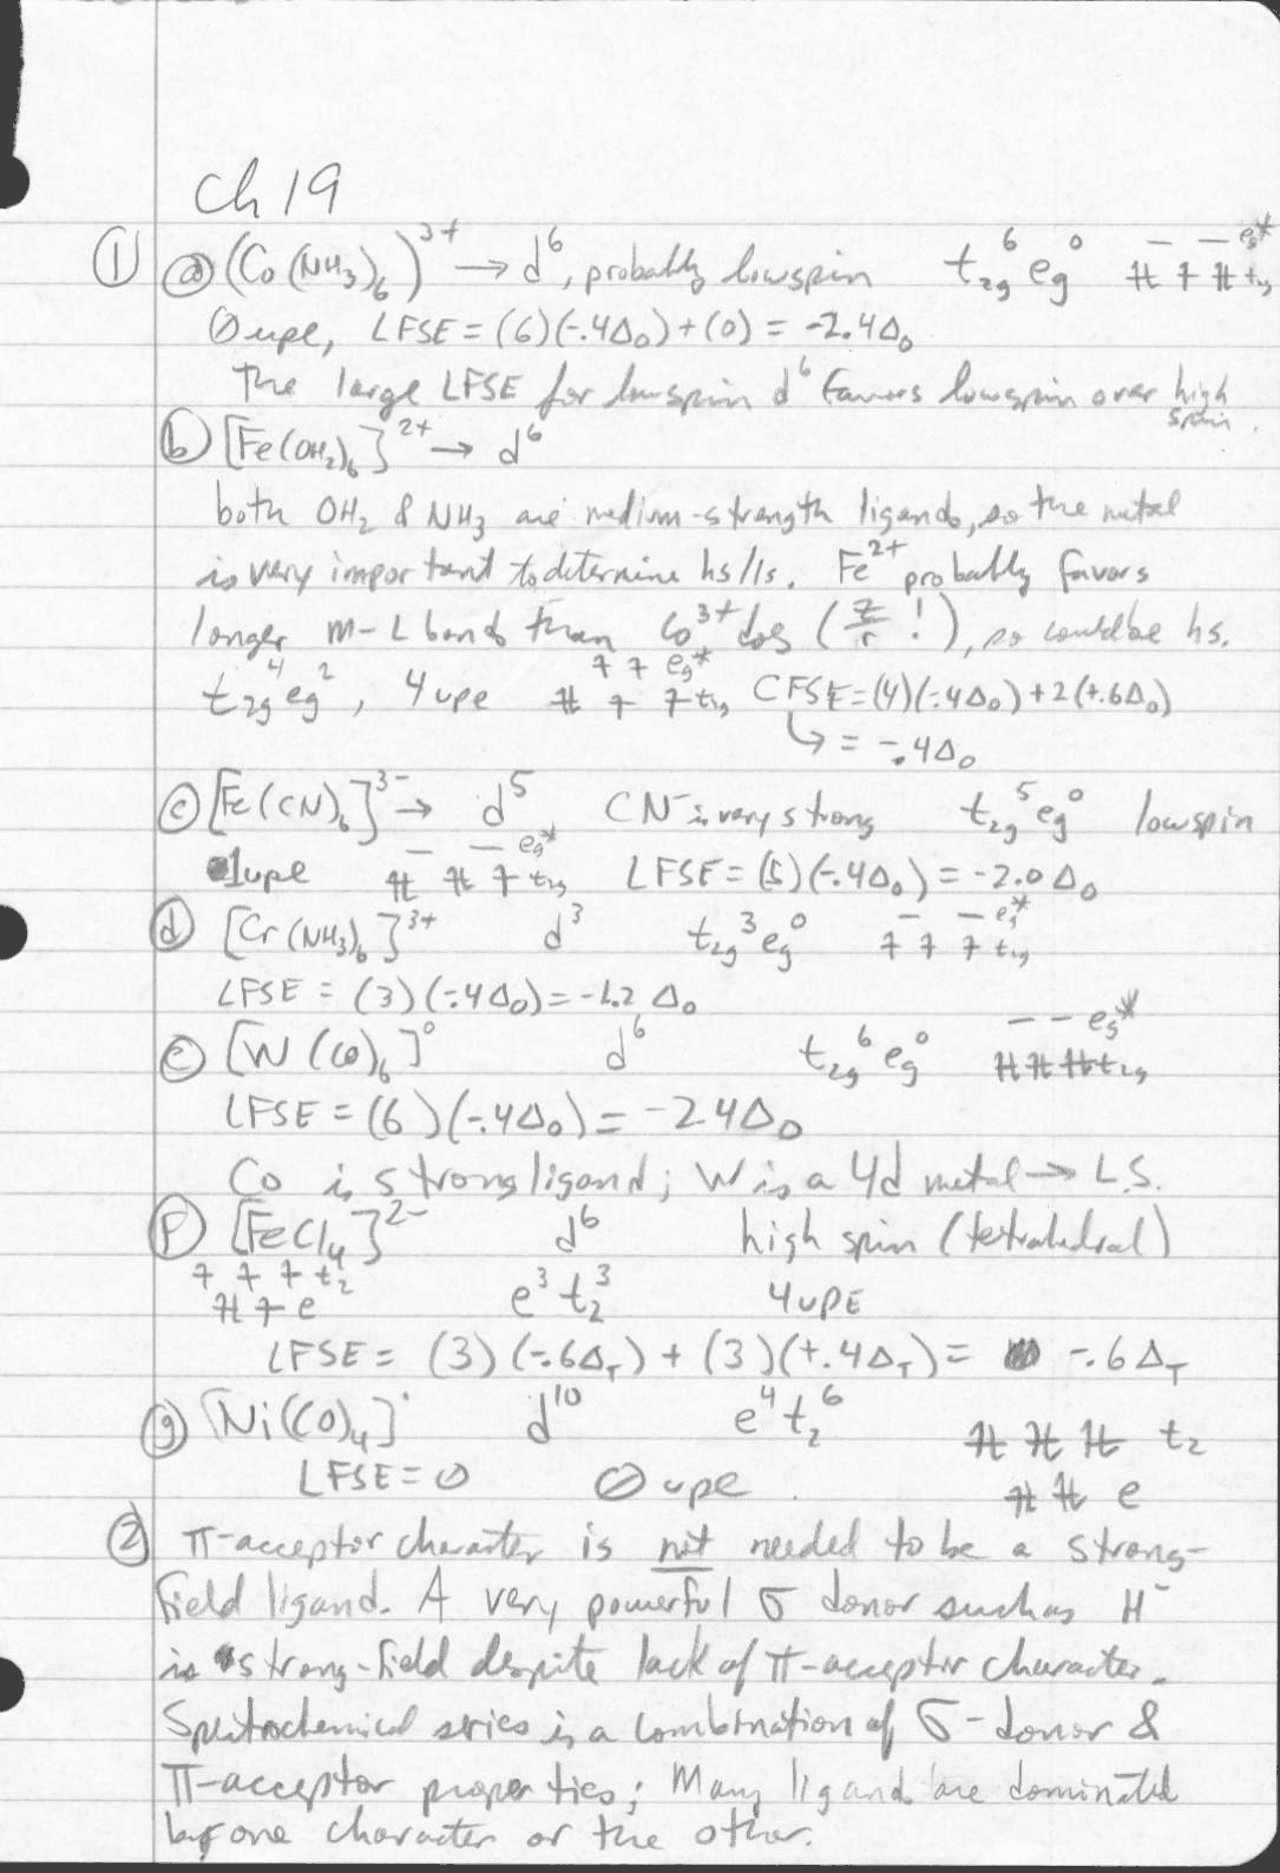 Ch 19
① ⓐ (Co(NH₃)₆)³⁺ → d⁶, probably lowspin t₂g⁶ eg⁰ eg* t₂g
0 upe, LFSE = (6)(-.4Δ₀) + (0) = -2.4Δ₀
The large LFSE for lowspin d⁶ favors lowspin over high spin.
ⓑ [Fe(OH₂)₆]²⁺ → d⁶
both OH₂ & NH₃ are medium-strength ligands, so the metal
is very important to determine hs/ls. Fe²⁺ probably favors
longer M-L bonds than Co³⁺ does (Z/r !), so could be hs.
t₂g⁴ eg², 4 upe eg* t₂g CFSE = (4)(-.4Δ₀) + 2(+.6Δ₀)
↳ = -.4Δ₀
ⓒ [Fe(CN)₆]³⁻ → d⁵ CN⁻ is very strong t₂g⁵ eg⁰ lowspin
1 upe eg* t₂g LFSE = (5)(-.4Δ₀) = -2.0Δ₀
ⓓ [Cr(NH₃)₆]³⁺ d³ t₂g³ eg⁰ eg* t₂g
LFSE = (3)(-.4Δ₀) = -1.2 Δ₀
ⓔ [W(CO)₆]⁰ d⁶ t₂g⁶ eg⁰ eg* t₂g
LFSE = (6)(-.4Δ₀) = -2.4Δ₀
CO is strong ligand; W is a 4d metal → L.S.
ⓕ [FeCl₄]²⁻ d⁶ high spin (tetrahedral)
t₂ e e³ t₂³ 4 UPE
LFSE = (3)(-.6Δ_T) + (3)(+.4Δ_T) = -.6Δ_T
ⓖ [Ni(CO)₄]° d¹⁰ e⁴ t₂⁶ t₂
LFSE = 0 0 upe e
② π-acceptor character is not needed to be a strong-
field ligand. A very powerful σ donor such as H⁻
is strong-field despite lack of π-acceptor character.
Spectrochemical series is a combination of σ-donor &
π-acceptor properties; Many ligands are dominated
by one character or the other.